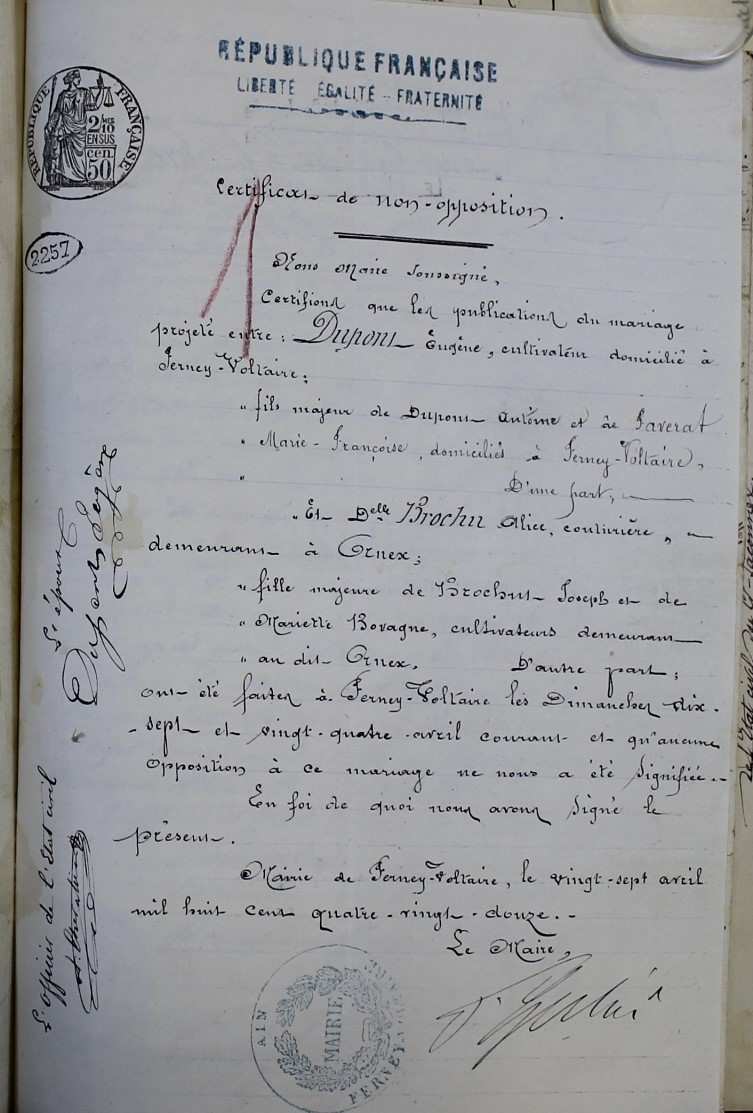 RÉPUBLIQUE FRANÇAISE
LIBERTÉ ÉGALITÉ - FRATERNITÉ
RÉPUBLIQUE FRANÇAISE
2/10
EN SUS
50 cen
2257
Certificat de non-opposition.
Nous Maire soussigné,
Certifions que les publications du mariage
projeté entre: Dupont Eugène, cultivateur domicilié à
Ferney-Voltaire;
" fils majeur de Dupont Antoine et de Paverat
" Marie-Françoise, domiciliés à Ferney-Voltaire,
" D'une part,
" Et Delle Brochu Alice, couturière,
demeurant à Ornex;
" fille majeure de Brochut Joseph et de
" Mariette Bovagne, cultivateurs demeurant
" au dit Ornex. D'autre part;
ont été faites à Ferney-Voltaire les Dimanches dix-
-sept et vingt-quatre avril courant et qu'aucune
opposition à ce mariage ne nous a été signifiée.-
En foi de quoi nous avons signé le
présent.
Mairie de Ferney-Voltaire, le vingt-sept avril
mil huit cent quatre-vingt-douze.-
Le Maire,
AIN
MAIRIE
FERNEY
L'époux
Dupont Eugène
L'officier de l'Etat civil